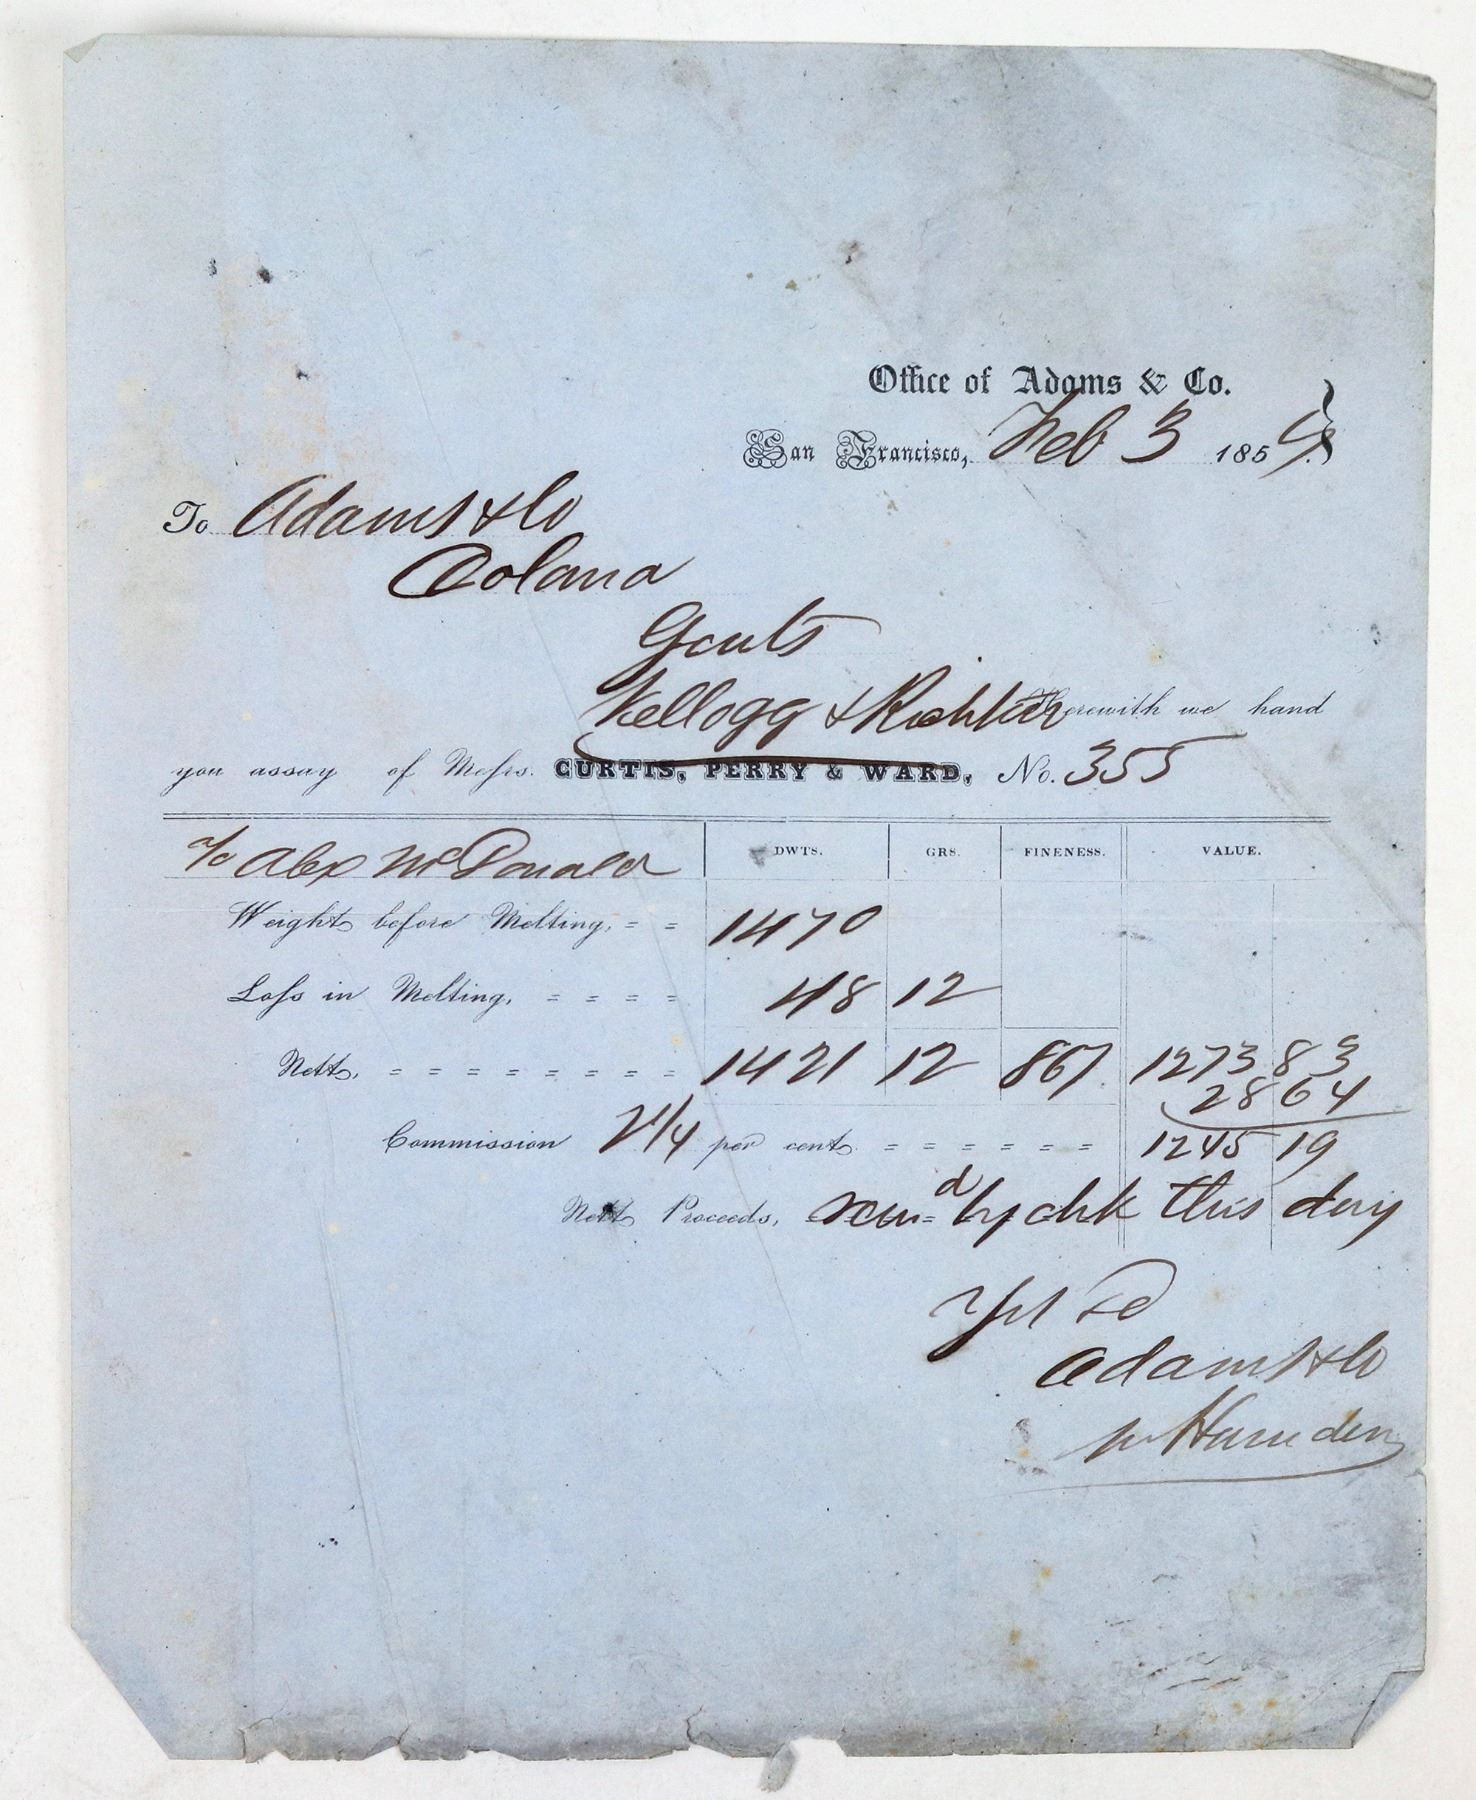 Office of Adams & Co.
San Francisco, Feb 3 1854.
To Adams & Co
Coloma
Gents
Kellogg & Richter Herewith we hand
you assay of Messrs. CURTIS, PERRY & WARD, No. 355
a/c Alex McDonald DWTS. GRS. FINENESS. VALUE.
Weight before Melting, 1470
Loss in Melting, 48 12
Nett, 1421 12 867 1273 83
28 64
Commission 2 1/4 per cent 1245 19
Nett Proceeds, remd by chk this day
Yrs &c
Adams & Co
pr Hamden